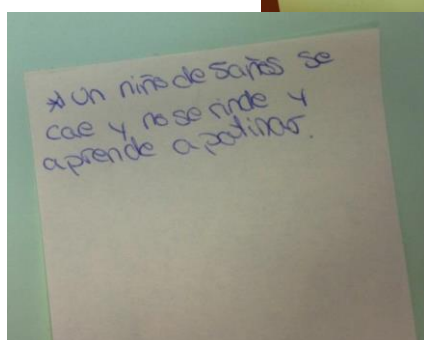 * Un niño de 5 años se
cae y no se rinde y
aprende a patinar.